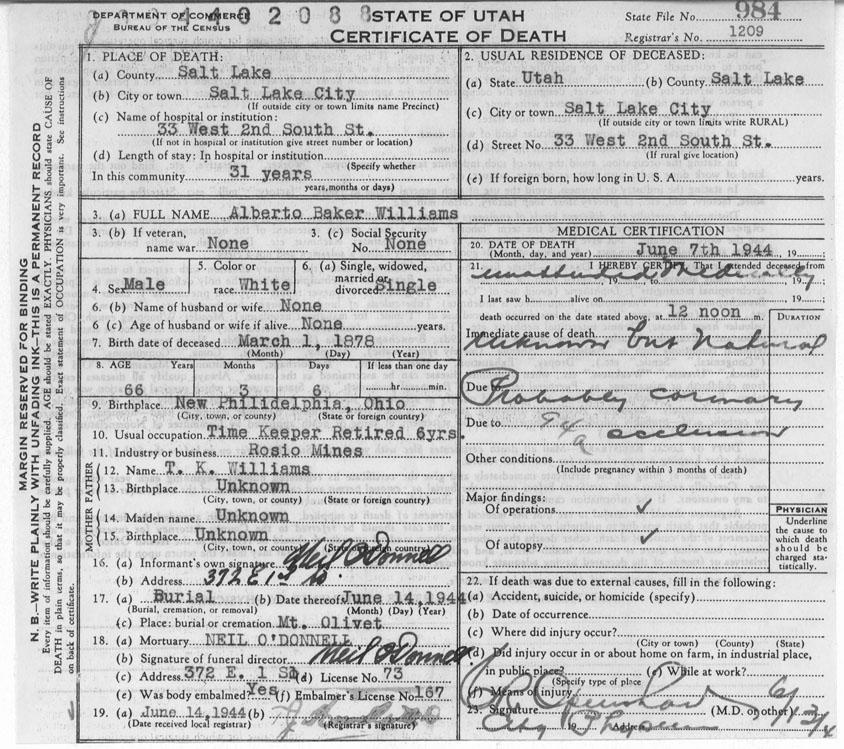 DEPARTMENT OF COMMERCE
BUREAU OF THE CENSUS
4402088
STATE OF UTAH
CERTIFICATE OF DEATH
State File No. 984
Registrar's No. 1209
MARGIN RESERVED FOR BINDING
N. B.—WRITE PLAINLY WITH UNFADING INK—THIS IS A PERMANENT RECORD
Every item of information should be carefully supplied. AGE should be stated EXACTLY. PHYSICIANS should state CAUSE OF
DEATH in plain terms, so that it may be properly classified. Exact statement of OCCUPATION is very important. See instructions
on back of certificate.
1. PLACE OF DEATH:
(a) County Salt Lake
(b) City or town Salt Lake City
(If outside city or town limits name Precinct)
(c) Name of hospital or institution:
33 West 2nd South St.
(If not in hospital or institution give street number or location)
(d) Length of stay: In hospital or institution
(Specify whether
In this community 31 years
years, months or days)
2. USUAL RESIDENCE OF DECEASED:
(a) State Utah (b) County Salt Lake
(c) City or town Salt Lake City
(If outside city or town limits write RURAL)
(d) Street No. 33 West 2nd South St.
(If rural give location)
(e) If foreign born, how long in U. S. A. years.
3. (a) FULL NAME Alberto Baker Williams
3. (b) If veteran, name war None
3. (c) Social Security No. None
4. Sex Male
5. Color or race White
6. (a) Single, widowed, married or divorced Single
6. (b) Name of husband or wife None
6. (c) Age of husband or wife if alive None years.
7. Birth date of deceased March 1, 1878
(Month) (Day) (Year)
8. AGE Years Months Days If less than one day
66 3 6 hr. min.
9. Birthplace New Philidelphia, Ohio
(City, town, or county) (State or foreign country)
10. Usual occupation Time Keeper Retired 6yrs.
11. Industry or business Rosio Mines
FATHER
12. Name T. K. Williams
13. Birthplace Unknown
(City, town, or county) (State or foreign country)
MOTHER
14. Maiden name Unknown
15. Birthplace Unknown
(City, town, or county) (State or foreign country)
16. (a) Informant's own signature Neil O'Donnell
(b) Address 372 E 1st So.
17. (a) Burial (b) Date thereof June 14, 1944
(Burial, cremation, or removal) (Month) (Day) (Year)
(c) Place: burial or cremation Mt. Olivet
18. (a) Mortuary NEIL O'DONNELL
(b) Signature of funeral director Neil O'Donnell
(c) Address 372 E. 1 St (d) License No. 73
(e) Was body embalmed? Yes (f) Embalmer's License No. 167
19. (a) June 14, 1944 (b)
(Date received local registrar) (Registrar's signature)
MEDICAL CERTIFICATION
20. DATE OF DEATH
(Month, day, and year) June 7th 1944, 19
21. I HEREBY CERTIFY, That I attended deceased from
unattended
19 to 19
I last saw h alive on 19
death occurred on the date stated above, at 12 noon m.
DURATION
Immediate cause of death
Unknown but Natural
Due to Probably coronary
Due to 94a occlusion
Other conditions
(Include pregnancy within 3 months of death)
Major findings:
Of operations ✓
Of autopsy ✓
PHYSICIAN
Underline
the cause to
which death
should be
charged sta-
tistically.
22. If death was due to external causes, fill in the following:
(a) Accident, suicide, or homicide (specify)
(b) Date of occurrence
(c) Where did injury occur?
(City or town) (County) (State)
(d) Did injury occur in or about home on farm, in industrial place,
in public place? (e) While at work?
(Specify type of place
(f) Means of injury
23. Signature (M.D. or other)
19 Address
City